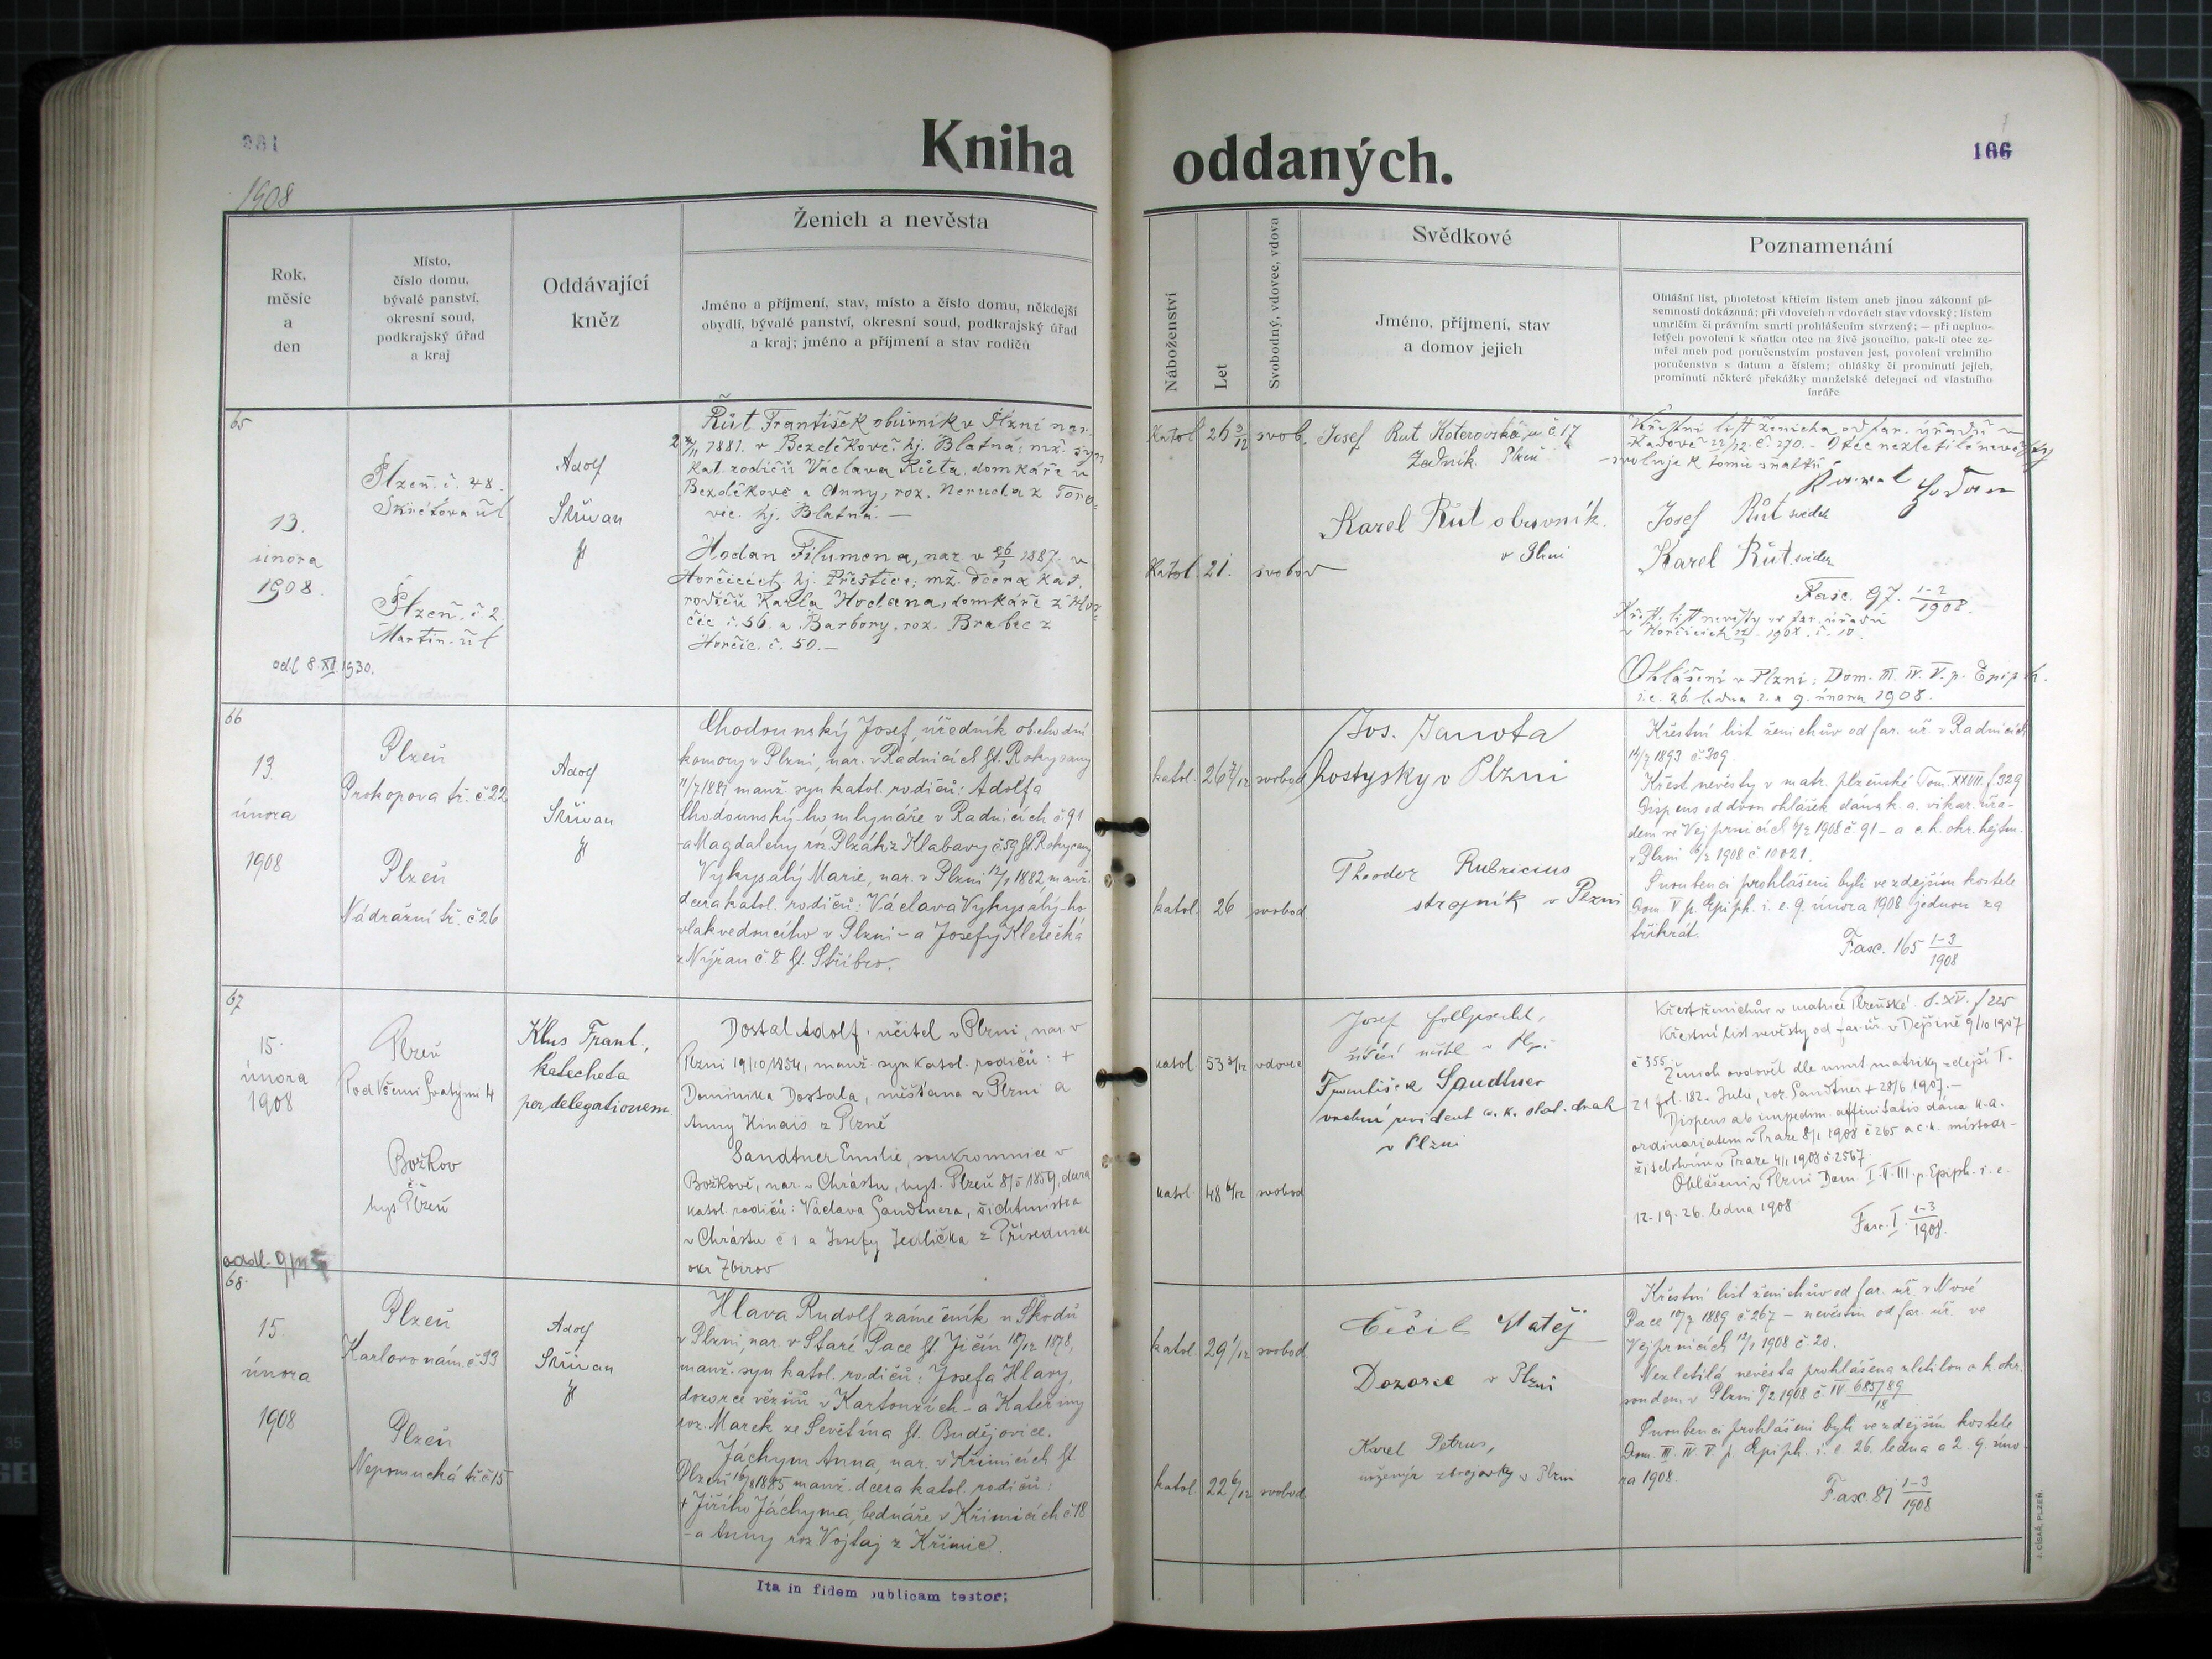 Kniha oddaných.
1908
Rok,
měsíc
a
den
Místo,
číslo domu,
bývalé panství,
okresní soud,
podkrajský úřad
a kraj
Oddávající
kněz
Ženich a nevěsta
Jméno a příjmení, stav, místo a číslo domu, někdejší
obydlí, bývalé panství, okresní soud, podkrajský úřad
a kraj; jméno a příjmení a stav rodičů
Náboženství
Let
Svobodný, vdovec, vdova
Svědkové
Jméno, příjmení, stav
a domov jejich
Poznamenání
Ohlášní list, plnoletost křticím listem aneb jinou zákonní pí-
semností dokázaná; při vdovcích a vdovách stav vdovský; listem
umrlčím či právním smrti prohlášením stvrzený; — při neplno-
letých povolení k sňatku otce na živě jsoucího, pak-li otec ze-
mřel aneb pod poručenstvím postaven jest, povolení vrchního
poručenstva s datum a číslem; ohlášky či prominutí jejich,
prominutí některé překážky manželské delegací od vlastního
faráře
65
13.
února
1908.
Plzeň. č. 48.
Skrétova ul
Plzeň. č. 2.
Martin. ul
odl 8. XI. 1930.
Adolf
Skřivan
Růt František obuvník v Plzni nar.
1881. v Bezděkově hj. Blatná; mž. syn
kat. rodičů Václava Růta, domkáře v
Bezděkově a Anny, roz. Neruda z
hj. Blatná. —
Hodan Filumena, nar. v 26/1 1887. v
Horčicích hj. Přeštice; mž. dcera kat.
rodičů Karla Hodana, domkáře z Hor-
čic č. 56. a Barbory, roz. Brabec z
Horčic. č. 50. —
katol 26 3/12 svob.
katol. 21. svobod
Josef Rut Koterovská u. č. 17
Zedník. Plzeň
Karel Růt obuvník.
v Plzni
Křestní list ženicha od far. úřadu v
Kadově 22/12. č. 270. — Otec nezletilé nevěsty
svoluje k tomu sňatku
Josef Růt svědek
Karel Růt svědek
Fasc. 97. 1-2/1908.
Křest. list nevěsty od far. úřadu
v Horčicích 1908. č. 10.
Ohlášeni v Plzni: Dom. III. IV. V. p. Epiph.
i. e. 26. ledna 2. a 9. února 1908.
66
13.
února
1908
Plzeň
Prokopova tř. č. 22
Plzeň
Nádražní tř. č. 26
Adolf
Skřivan
Chodounský Josef, úředník obchodní
komory v Plzni, nar. v Radnicích ht. Rokycany
11/7 1881 manž. syn katol. rodičů: Adolfa
Chodounský-ho mlynáře v Radnicích č. 91
- a Magdaleny roz. Plzák z Klabavy č. 59 ht. Rokycany
Vykysalý Marie, nar. v Plzni 12/1 1882 manž.
dcera katol. rodičů: Václava Vykysalý-ho
vlakvedoucího v Plzni - a Josefy Kletečka
z Nýřan č. 8 ht. Stříbro.
katol. 26 7/12 svobod
katol. 26 svobod
Jos. Janota
hostynský v Plzni
Theodor Rubricius
strojník v Plzni
Křestní list ženichův od far. úř. v Radnicích
14/7 1893 č. 309.
Křest nevěsty v matr. plzeňské Tom. XXXIII. f. 329
Dispens od dvou ohlášek dána k. a. vikar. úřa-
dem ve Vejprnicích 6/2 1908 č. 91 - a c. k. okr. hejtm.
v Plzni 6/2 1908 č 10021.
Snoubenci prohlášeni byli ve zdejším kostele
Dom. V p. Epiph. i. e. 9. února 1908 jednou za
třikrát.
Fasc. 165 1-3/1908
67
15.
února
1908
Plzeň
Pod Všemi Svatými 4
Božkov
hejt. Plzeň
Klus Frant.,
katecheta
per delegationem
Dostal Adolf, učitel v Plzni, nar. v
Plzni 19/10 1854, manž. syn katol. rodičů: +
Dominika Dostala, měšťana v Plzni a
Anny Hinais z Plzně
Sandtner Emilie, soukromnice v
Božkově, nar. v Chrástu, hejt. Plzeň 8/5 1859, dcera
katol rodičů: Václava Sandtnera, šichtmistra
v Chrástu č 1 a Josefy Jedlička z Přísednice
okr Zbirov
katol. 53 3/12 vdovec
katol. 48 svobod
Josef Follprecht,
řídící učitel v Plzni
František Sandtner
vrchní revident c. k. stát. drah
v Plzni
Křest ženichův v matrice Plzeňské T. XV. f 225
Křestní list nevěsty od far. úř. v Dejšině 9/10 1907
č 355
Ženich ovdověl dle umrt. matriky zdejší T.
21 fol. 182. Julie, roz. Sandtner + 28/6 1907.—
Dispens ab impedim. affinitatis dána k. a.
ordinariatem v Praze 8/1 1908 č 265 a c. k. místodr-
žitelstvím v Praze 4/1 1908 č 2567.
Ohlášeni v Plzni Dom. I. II. III. p. Epiph. i. e.
12. 19. 26. ledna 1908
Fasc. I. 1-3/1908.
68.
15.
února
1908
Plzeň
Karlovo nám. č. 33
Plzeň
Nepomucká tř. č. 15
Adolf
Skřivan
Hlava Rudolf zámečník u Škodů
v Plzni, nar. v Staré Pace ht. Jičín 18/12 1878,
manž. syn katol. rodičů: Josefa Hlavy,
dozorce vězňů v Kartouzích - a Kateřiny
roz. Marek ze Ševětína ht. Budějovice.
Jáchym Anna, nar. v Křimicích ht.
Plzeň 16/8 1885 manž. dcera katol. rodičů:
+ Jiřího Jáchyma, bednáře v Křimicích č 18
- a Anny roz. Vojtaj z Křimic.
katol. 29 1/12 svobod.
katol. 22 6/12 svobod
Čečil Matěj
Dozorce v Plzni
Karel Petrus,
inženýr zbrojovky v Plzni
Křestní list ženichův od far. úř. v Nové
Pace 10/7 1889 č. 267 — nevěstin od far. úř. ve
Vejprnicích 12/1 1908 č. 20.
Nezletilá nevěsta prohlášena zletilou c. k. okr.
soudem v Plzni 8/2 1908 č. IV. 685/89
18
Snoubenci prohlášeni byli ve zdejším kostele
Dom. III. IV V p. Epiph. i. e. 26. ledna a 2. 9. úno-
ra 1908.
Fasc. 81 1-3/1908
Ita in fidem publicam testor:
J. CÍSAŘ, PLZEŇ.